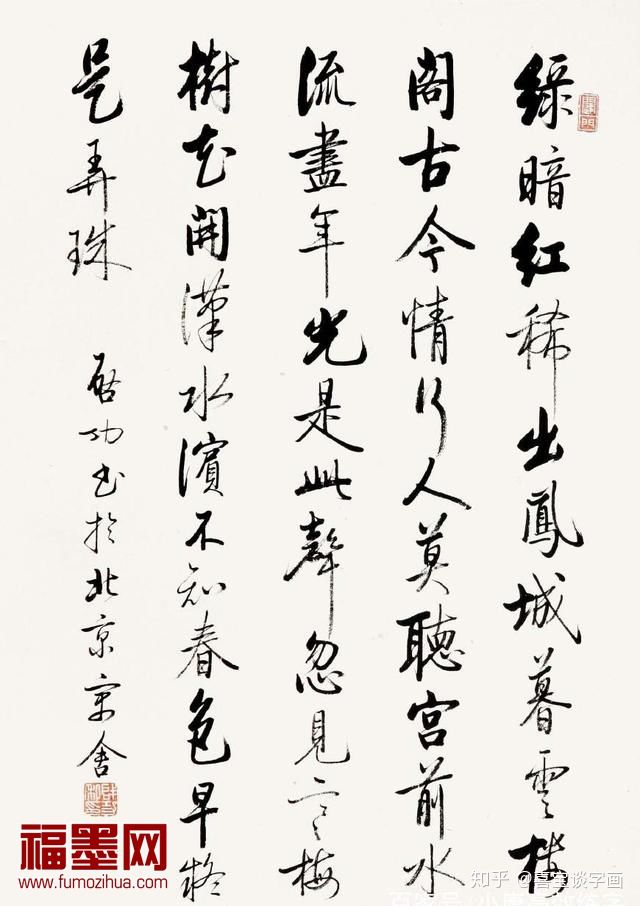 綠暗紅稀出鳳城暮雲樓
閣古今情行人莫聽宮前水
流盡年光是此聲忽見寒梅
樹花開漢水濱不知春色早疑
是弄珠
啟功書於北京寓舍
福墨网
www.fumozihua.com
知乎 @喜宝谈字画